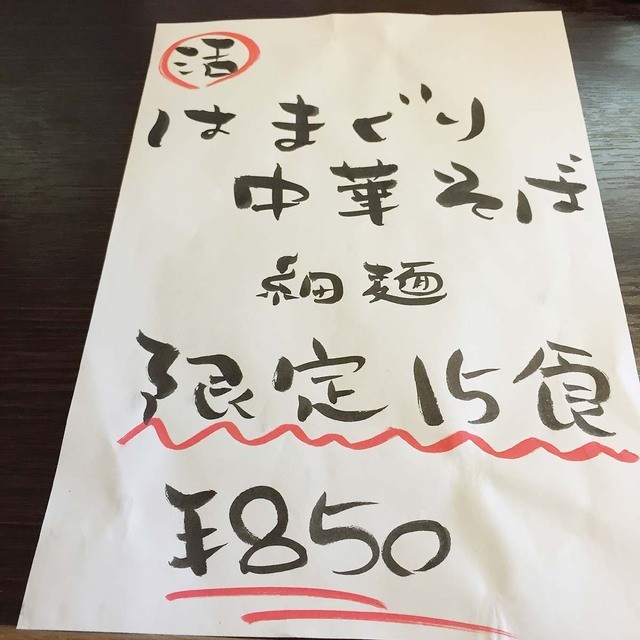 活
はまぐり
中華そば
細麺
限定15食
¥850